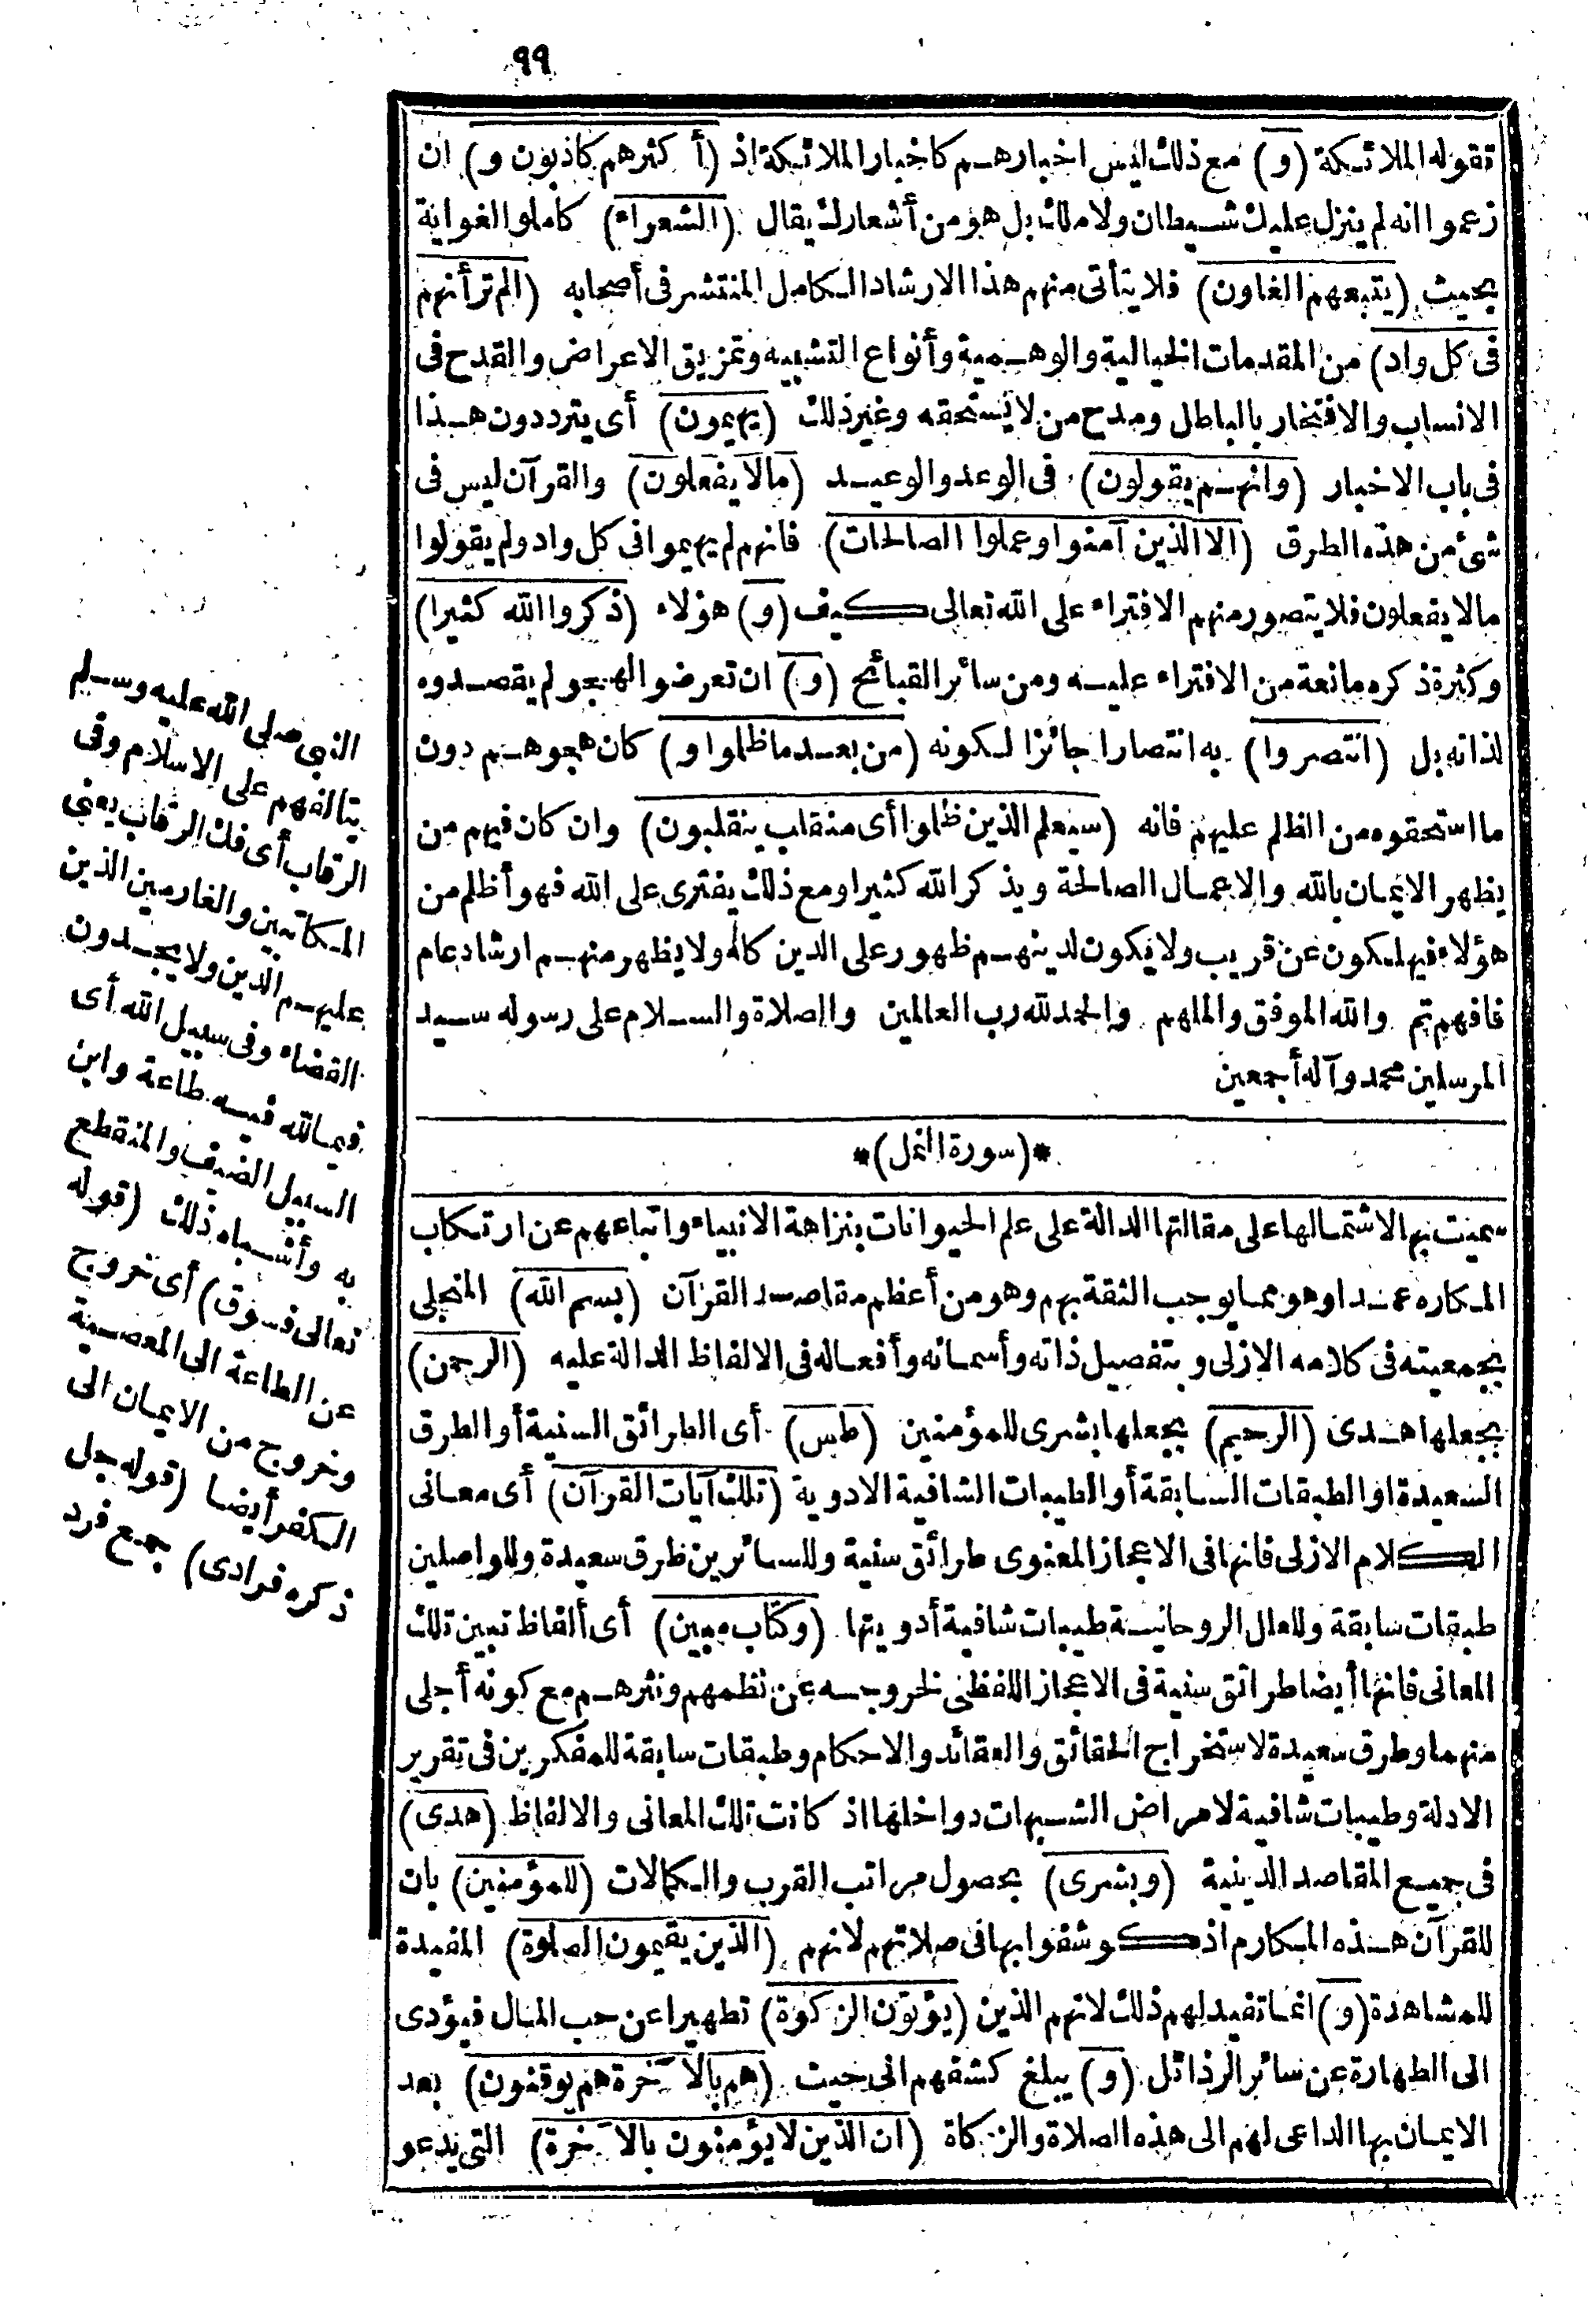 ٩٩
تقوله الملائكة (و) مع ذلك ليس اخبارهم كاخبار الملائكة اذ (أكثرهم كاذبون و) ان
زعموا انه لم ينزل عليك شيطان ولا ملك بل هو من أشعارك يقال (الشعراء) كاملوا الغواية
بحيث (يتبعهم الغاون) فلا يتأتى منهم هذا الارشاد الكامل المنتشر فى أصحابه (ألم تر أنهم
فى كل واد) من المقدمات الخيالية والوهمية وأنواع التشبيه وتمزيق الاعراض والقدح فى
الانساب والافتخار بالباطل ومدح من لا يستحقه وغير ذلك (يهيمون) أى يترددون هذا
فى باب الاخبار (وانهم يقولون) فى الوعد والوعيد (مالا يفعلون) والقرآن ليس فى
شئ من هذه الطرق (الا الذين آمنوا وعملوا الصالحات) فانهم لم يهيموا فى كل واد ولم يقولوا
مالا يفعلون فلا يتصور منهم الافتراء على الله تعالى كيف (و) هؤلاء (ذكروا الله كثيرا)
وكثرة ذكره مانعة من الافتراء عليه ومن سائر القبائح (و) ان تعرضوا لهجو لم يقصدوه
لذاته بل (انتصروا) به انتصارا جائزا لكونه (من بعد ما ظلموا و) كان هجوهم دون
ما استحقوه من الظلم عليهم فانه (سيعلم الذين ظلموا أى منقلب ينقلبون) وان كان فيهم من
يظهر الايمان بالله والاعمال الصالحة ويذكر الله كثيرا ومع ذلك يفترى على الله فهو أظلم من
هؤلاء فيهلكون عن قريب ولا يكون لدينهم ظهور على الدين كله ولا يظهر منهم ارشاد عام
فافهم تم والله الموفق والملهم والحمد لله رب العالمين والصلاة والسلام على رسوله سيد
المرسلين محمد وآله أجمعين
*(سورة النمل)*
سميت بها لاشتمالها على مقالتها الدالة على علم الحيوانات بنزاهة الانبياء واتباعهم عن ارتكاب
المكاره عمدا وهو مما يوجب الثقة بهم وهو من أعظم مقاصد القرآن (بسم الله) المتجلى
بجمعيته فى كلامه الازلى وبتفصيل ذاته وأسمائه وأفعاله فى الالفاظ الدالة عليه (الرحمن)
بجعلها هدى (الرحيم) بجعلها بشرى للمؤمنين (طس) أى الطرائق السنية أو الطرق
السعيدة او الطبقات السابقة أو الطيبات الشافية الادوية (تلك آيات القرآن) أى معانى
الكلام الازلى فانها فى الاعجاز المعنوى طرائق سنية وللسائرين طرق سعيدة وللواصلين
طبقات سابقة وللعلل الروحانية طيبات شافية أدويتها (وكتاب مبين) أى ألفاظ تبين تلك
المعانى فانها أيضا طرائق سنية فى الاعجاز اللفظى لخروجه عن نظمهم ونثرهم مع كونه أجلى
منهما وطرق سعيدة لاستخراج الحقائق والعقائد والاحكام وطبقات سابقة للمفكرين فى تقرير
الادلة وطيبات شافية لامراض الشبهات دواخلها اذ كانت تلك المعانى والالفاظ (هدى)
فى جميع المقاصد الدينية (وبشرى) بحصول مراتب القرب والكمالات (للمؤمنين) بان
للقرآن هذه المكارم اذ كوشفوا بها فى صلاتهم لانهم (الذين يقيمون الصلوة) المفيدة
للمشاهدة (و) انما تفيد لهم ذلك لانهم الذين (يؤتون الزكوة) تطهيرا عن حب المال فيؤدى
الى الطهارة عن سائر الرذائل (و) يبلغ كشفهم الى حيث (هم بالآخرة هم يوقنون) بعد
الايمان بها الداعى لهم الى هذه الصلاة والزكاة (ان الذين لا يؤمنون بالآخرة) التى يدعو
النبى صلى الله عليه وسلم
يتألفهم على الاسلام وفى
الرقاب أى فك الرقاب يعنى
المكاتبين والغارمين الذين
عليهم الدين ولا يجدون
القضاء وفى سبيل الله أى
فيما لله فيه طاعة وابن
السبيل الضيف والمنقطع
به وأشباه ذلك (قوله
تعالى فسوق) أى خروج
عن الطاعة الى المعصية
وخروج من الايمان الى
الكفر أيضا (قوله جل
ذكره فرادى) جمع فرد